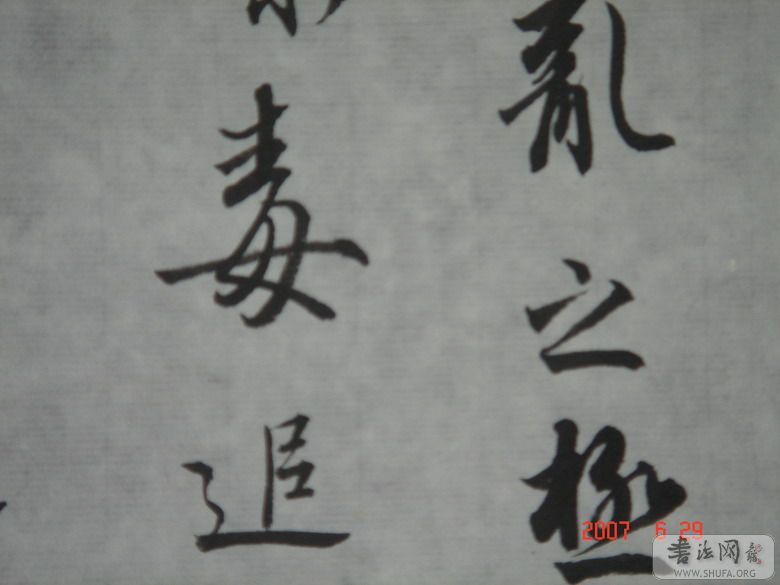 亂之極
毒追
2007 6 29
書法网
WWW.SHUFA.ORG